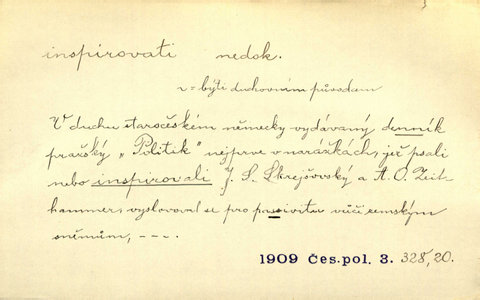 inspirovati nedok.
= býti duchovním původcem
V duchu staročeském německy vydávaný denník
pražský „Politik" nejprve v narážkách, jež psali
nebo inspirovali J. S. Skrejšovský a A. O. Zeit
hammer, vyslovoval se pro passivitu vůči zemským
sněmům, ---.
1909 Čes. pol. 3. 328,20.